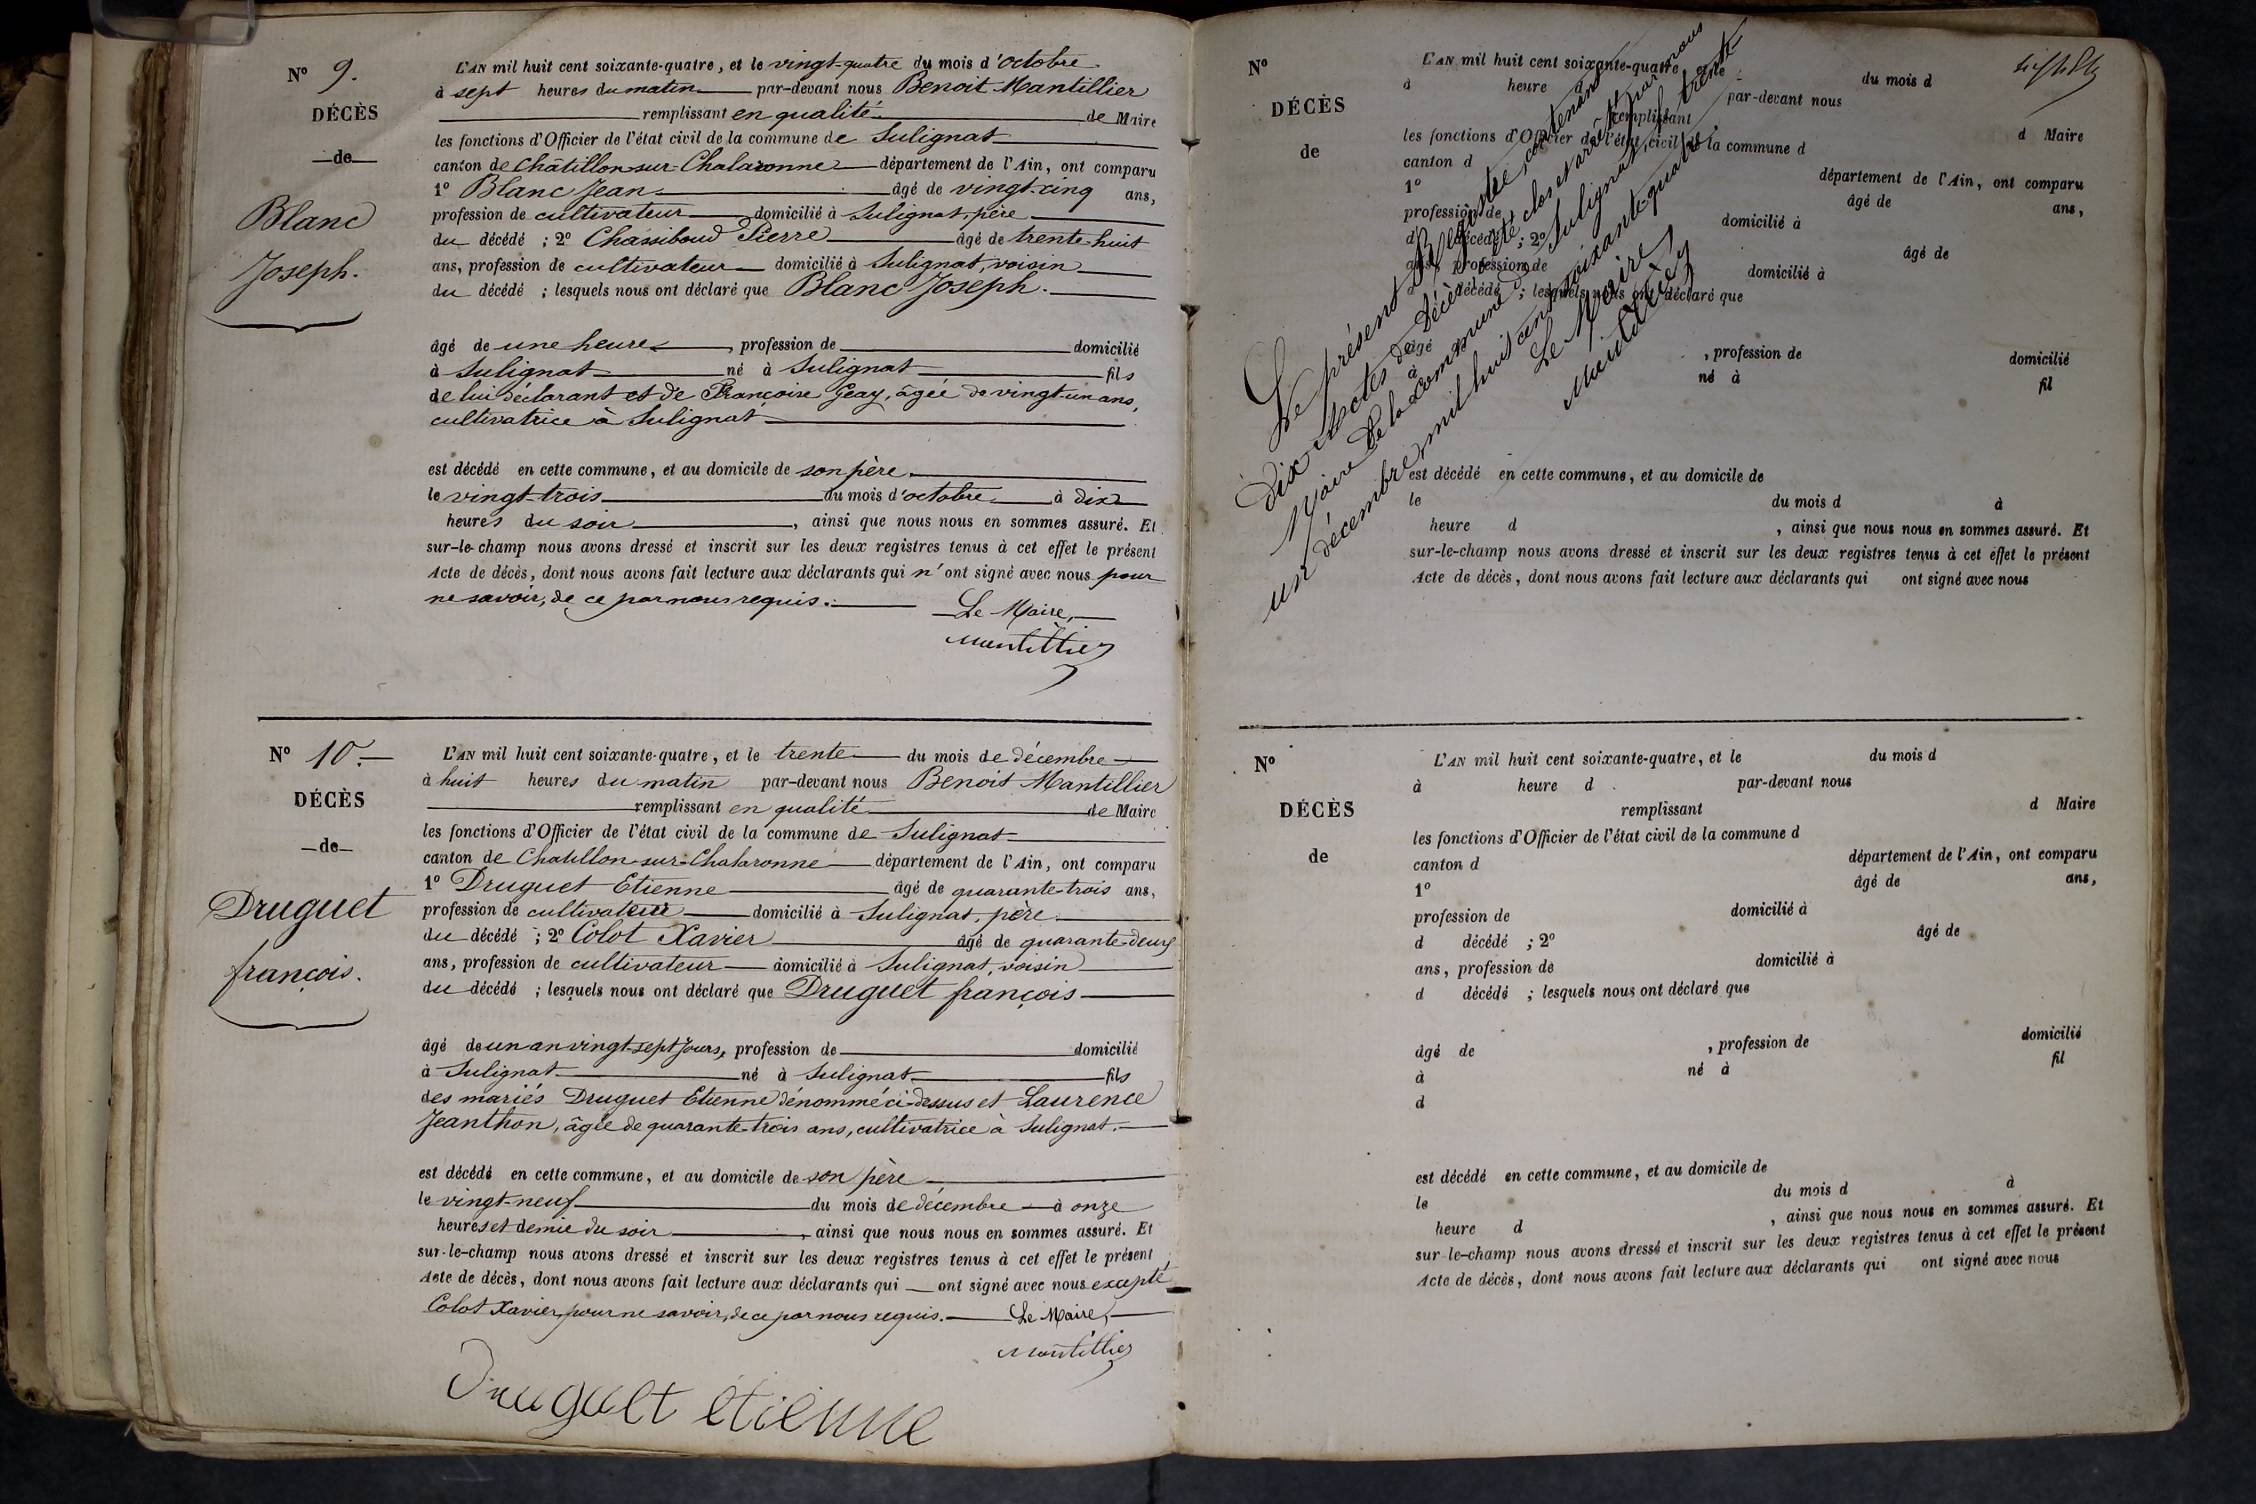 N° 9.
DÉCÈS
de
Blanc
Joseph.
L'AN mil huit cent soixante-quatre, et le vingt-quatre du mois d'octobre
à sept heures du matin par-devant nous Benoit Mantillier
remplissant en qualité de Maire
les fonctions d'Officier de l'état civil de la commune de Sulignat
canton de Châtillon-sur-Chalaronne département de l'Ain, ont comparu
1° Blanc Jean âgé de vingt-cinq ans,
profession de cultivateur domicilié à Sulignat, père
du décédé ; 2° Chassiboud Pierre âgé de trente-huit
ans, profession de cultivateur domicilié à Sulignat, voisin
du décédé ; lesquels nous ont déclaré que Blanc Joseph.
âgé de une heure, profession de domicilié
à Sulignat né à Sulignat fils
de lui déclarant et de Françoise Geay, âgée de vingt-un ans,
cultivatrice à Sulignat
est décédé en cette commune, et au domicile de son père
le vingt-trois du mois d'octobre à dix
heures du soir, ainsi que nous nous en sommes assuré. Et
sur-le-champ nous avons dressé et inscrit sur les deux registres tenus à cet effet le présent
Acte de décès, dont nous avons fait lecture aux déclarants qui n'ont signé avec nous pour
ne savoir, de ce par nous requis. Le Maire,
Mantillier
N° 10.
DÉCÈS
de
Druguet
françois.
L'AN mil huit cent soixante-quatre, et le trente du mois de décembre
à huit heures du matin par-devant nous Benoit Mantillier
remplissant en qualité de Maire
les fonctions d'Officier de l'état civil de la commune de Sulignat
canton de Chatillon-sur-Chalaronne département de l'Ain, ont comparu
1° Druguet Etienne âgé de quarante-trois ans,
profession de cultivateur domicilié à Sulignat, père
du décédé ; 2° Colot Xavier âgé de quarante-deux
ans, profession de cultivateur domicilié à Sulignat, voisin
du décédé ; lesquels nous ont déclaré que Druguet françois
âgé de un an vingt-sept jours, profession de domicilié
à Sulignat né à Sulignat fils
des mariés Druguet Etienne dénommé ci-dessus et Laurence
Jeanthon, âgée de quarante-trois ans, cultivatrice à Sulignat.
est décédé en cette commune, et au domicile de son père
le vingt-neuf du mois de décembre à onze
heures et demie du soir, ainsi que nous nous en sommes assuré. Et
sur-le-champ nous avons dressé et inscrit sur les deux registres tenus à cet effet le présent
Acte de décès, dont nous avons fait lecture aux déclarants qui ont signé avec nous excepté
Colot Xavier, pour ne savoir, de ce par nous requis. Le Maire,
Mantillier
Druguet étienne
N°
DÉCÈS
de
L'AN mil huit cent soixante-quatre, et le du mois d
à heure par-devant nous
remplissant d Maire
les fonctions d'Officier de l'état civil de la commune d
canton d département de l'Ain, ont comparu
1° âgé de ans,
profession de domicilié à
d décédé ; 2° âgé de
ans, profession de domicilié à
d décédé ; lesquels nous ont déclaré que
âgé de , profession de domicilié
à né à fil
est décédé en cette commune, et au domicile de
le du mois d à
heure d , ainsi que nous nous en sommes assuré. Et
sur-le-champ nous avons dressé et inscrit sur les deux registres tenus à cet effet le présent
Acte de décès, dont nous avons fait lecture aux déclarants qui ont signé avec nous
Le présent Registre, contenant
dix actes de Décès, a été clos et arrêté par nous
Maire de la Commune de Sulignat, le trente-
un décembre mil huit cent soixante-quatre.
Le Maire,
Mantillier
N°
DÉCÈS
de
L'AN mil huit cent soixante-quatre, et le du mois d
à heure d par-devant nous
remplissant d Maire
les fonctions d'Officier de l'état civil de la commune d
canton d département de l'Ain, ont comparu
1° âgé de ans,
profession de domicilié à
d décédé ; 2° âgé de
ans, profession de domicilié à
d décédé ; lesquels nous ont déclaré que
âgé de , profession de domicilié
à né à fil
d
est décédé en cette commune, et au domicile de
le du mois d à
heure d , ainsi que nous nous en sommes assuré. Et
sur-le-champ nous avons dressé et inscrit sur les deux registres tenus à cet effet le présent
Acte de décès, dont nous avons fait lecture aux déclarants qui ont signé avec nous